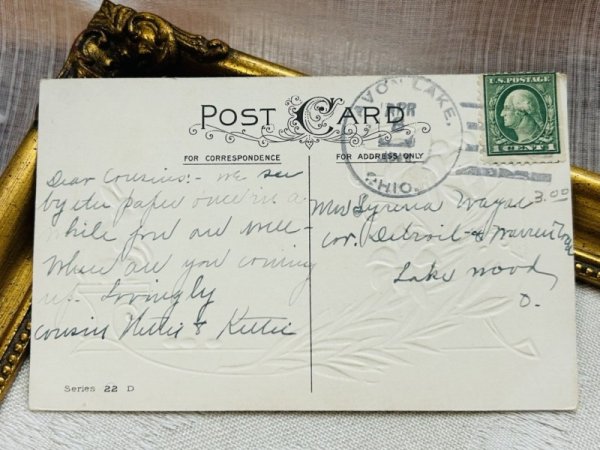 POST CARD
FOR CORRESPONDENCE
FOR ADDRESS ONLY
AVON LAKE,
APR
OHIO.
U.S. POSTAGE
CENT 1
Dear Cousins:- we see
by the paper once in a
while you are well-
When are you coming
up. Lovingly
cousins Nellie & Kittie
3.00
Mrs Syrena Wayne
cor. Detroit & Warren
Lake wood
O.
Series 22 D